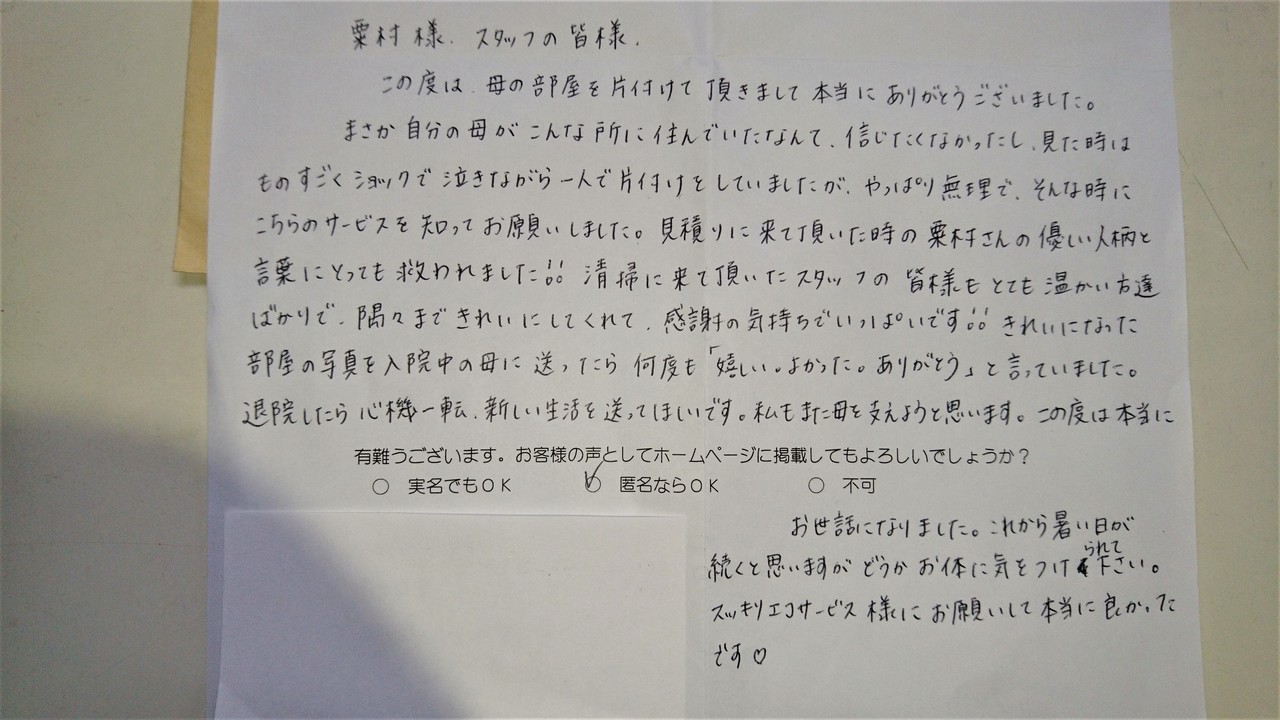 粟村様. スタッフの皆様.
この度は、母の部屋を片付けて頂きまして本当にありがとうございました。
まさか自分の母がこんな所に住んでいたなんて、信じたくなかったし、見た時は
ものすごくショックで泣きながら一人で片付けをしていましたが、やっぱり無理で、そんな時に
こちらのサービスを知ってお願いしました。見積りに来て頂いた時の粟村さんの優しい人柄と
言葉にとっても救われました!! 清掃に来て頂いたスタッフの皆様もとても温かい方達
ばかりで、隅々まできれいにしてくれて、感謝の気持ちでいっぱいです!! きれいになった
部屋の写真を入院中の母に送ったら何度も「嬉しい。よかった。ありがとう」と言っていました。
退院したら心機一転、新しい生活を送ってほしいです。私もまた母を支えようと思います。この度は本当に
有難うございます。お客様の声としてホームページに掲載してもよろしいでしょうか？
○ 実名でもOK ○ 匿名ならOK ○ 不可
お世話になりました。これから暑い日が
続くと思いますがどうかお体に気をつけられて下さい。
スッキリエコサービス様にお願いして本当に良かった
です♡